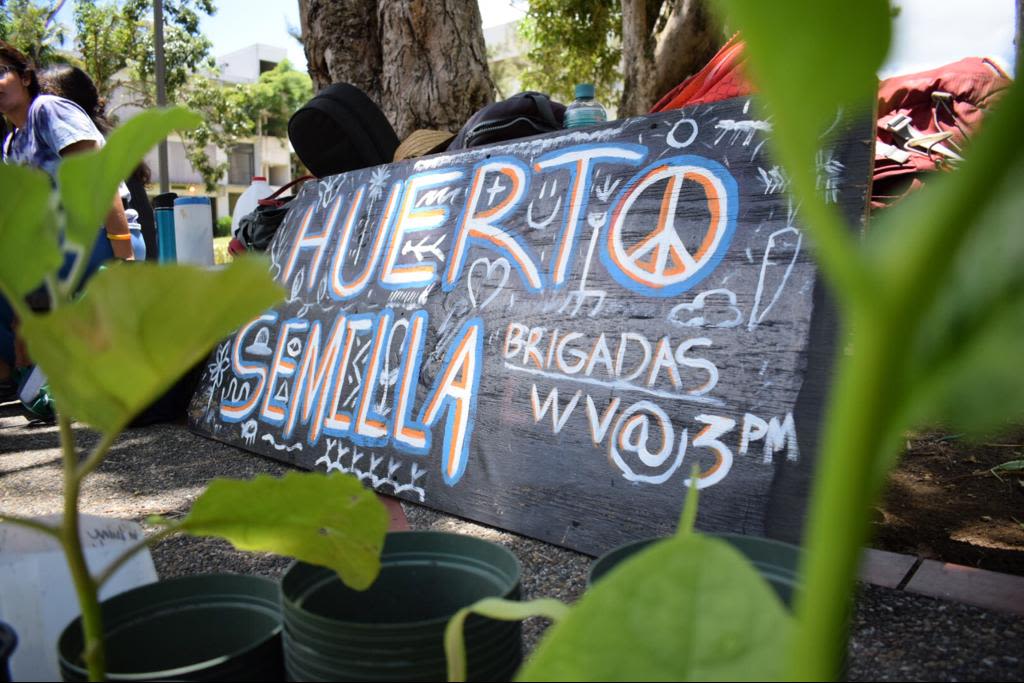 HUERTO
SEMILLA
BRIGADAS
WV@3PM